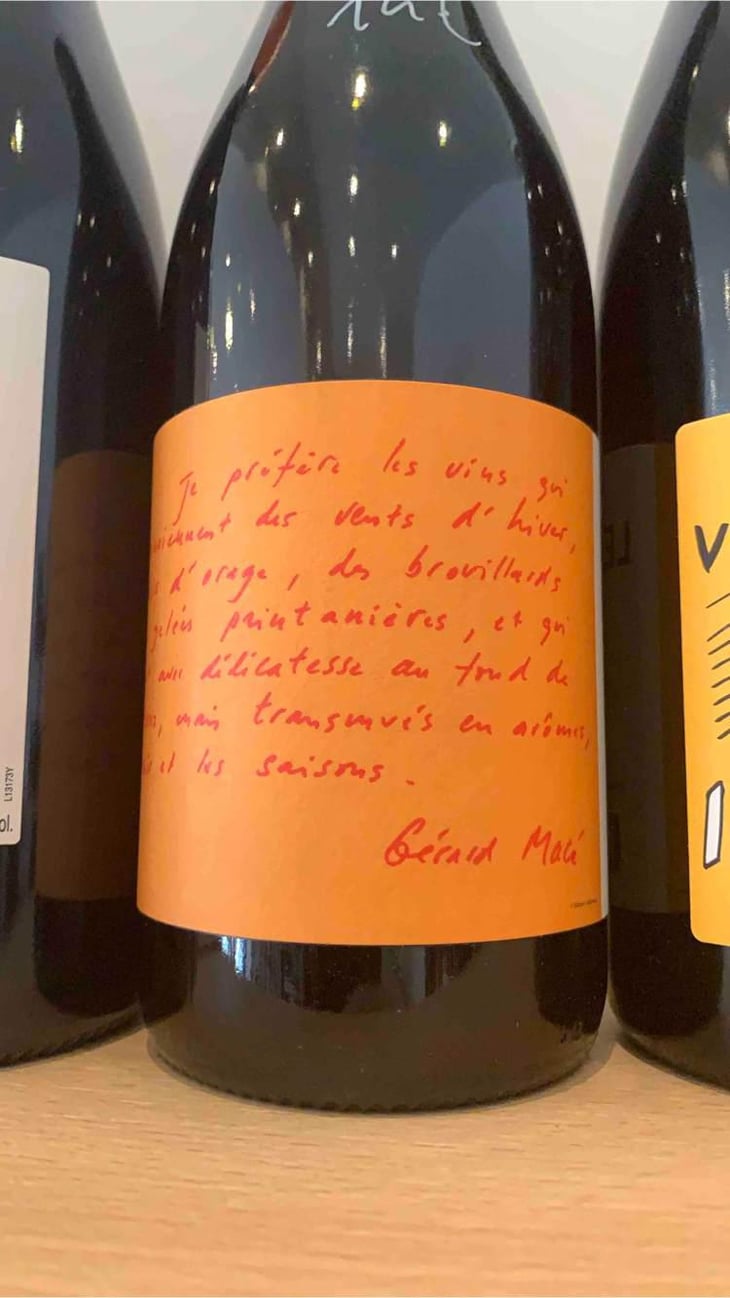 14€
Je préfère les vins qui
des vents d'hiver,
d'orage, des brouillards
printanières, et qui
avec délicatesse au fond de
mais transmués en arômes,
et les saisons.
Gérard Macé
L13173Y
ol.
V